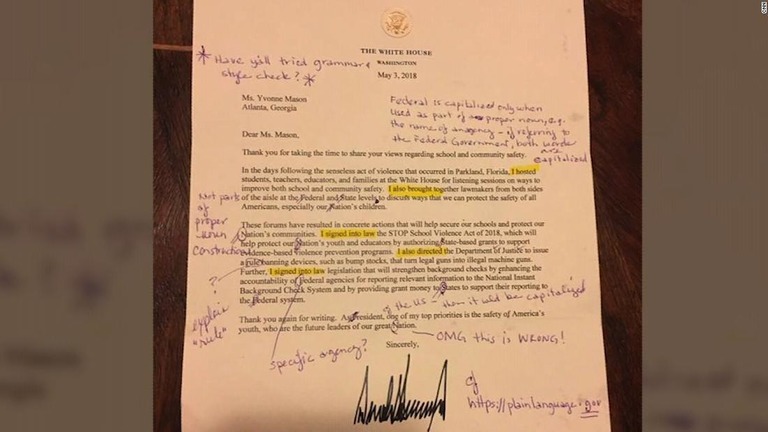 CNN
THE WHITE HOUSE
WASHINGTON
May 3, 2018
* Have y'all tried grammar &
style check? *
Ms. Yvonne Mason
Atlanta, Georgia
Federal is capitalized only when
used as part of a proper noun, e.g.
the name of an agency - if referring to
the Federal Government, both words
are
capitalized
Dear Ms. Mason,
Thank you for taking the time to share your views regarding school and community safety.
In the days following the senseless act of violence that occurred in Parkland, Florida, I hosted
students, teachers, educators, and families at the White House for listening sessions on ways to
improve both school and community safety. I also brought together lawmakers from both sides
of the aisle at the Federal and State levels to discuss ways that we can protect the safety of all
Americans, especially our Nation's children.
Not part
of
proper
noun
construction
These forums have resulted in concrete actions that will help secure our schools and protect our
Nation's communities. I signed into law the STOP School Violence Act of 2018, which will
help protect our Nation's youth and educators by authorizing State-based grants to support
evidence-based violence prevention programs. I also directed the Department of Justice to issue
a rule banning devices, such as bump stocks, that turn legal guns into illegal machine guns.
Further, I signed into law legislation that will strengthen background checks by enhancing the
accountability of Federal agencies for reporting relevant information to the National Instant
Background Check System and by providing grant money to States to support their reporting to
the Federal system.
?
explain
"rule"
of the US - then it wld be capitalized
Thank you again for writing. As President, one of my top priorities is the safety of America's
youth, who are the future leaders of our great Nation.
OMG this is WRONG!
specific agency?
Sincerely,
cf
https://plainlanguage.gov